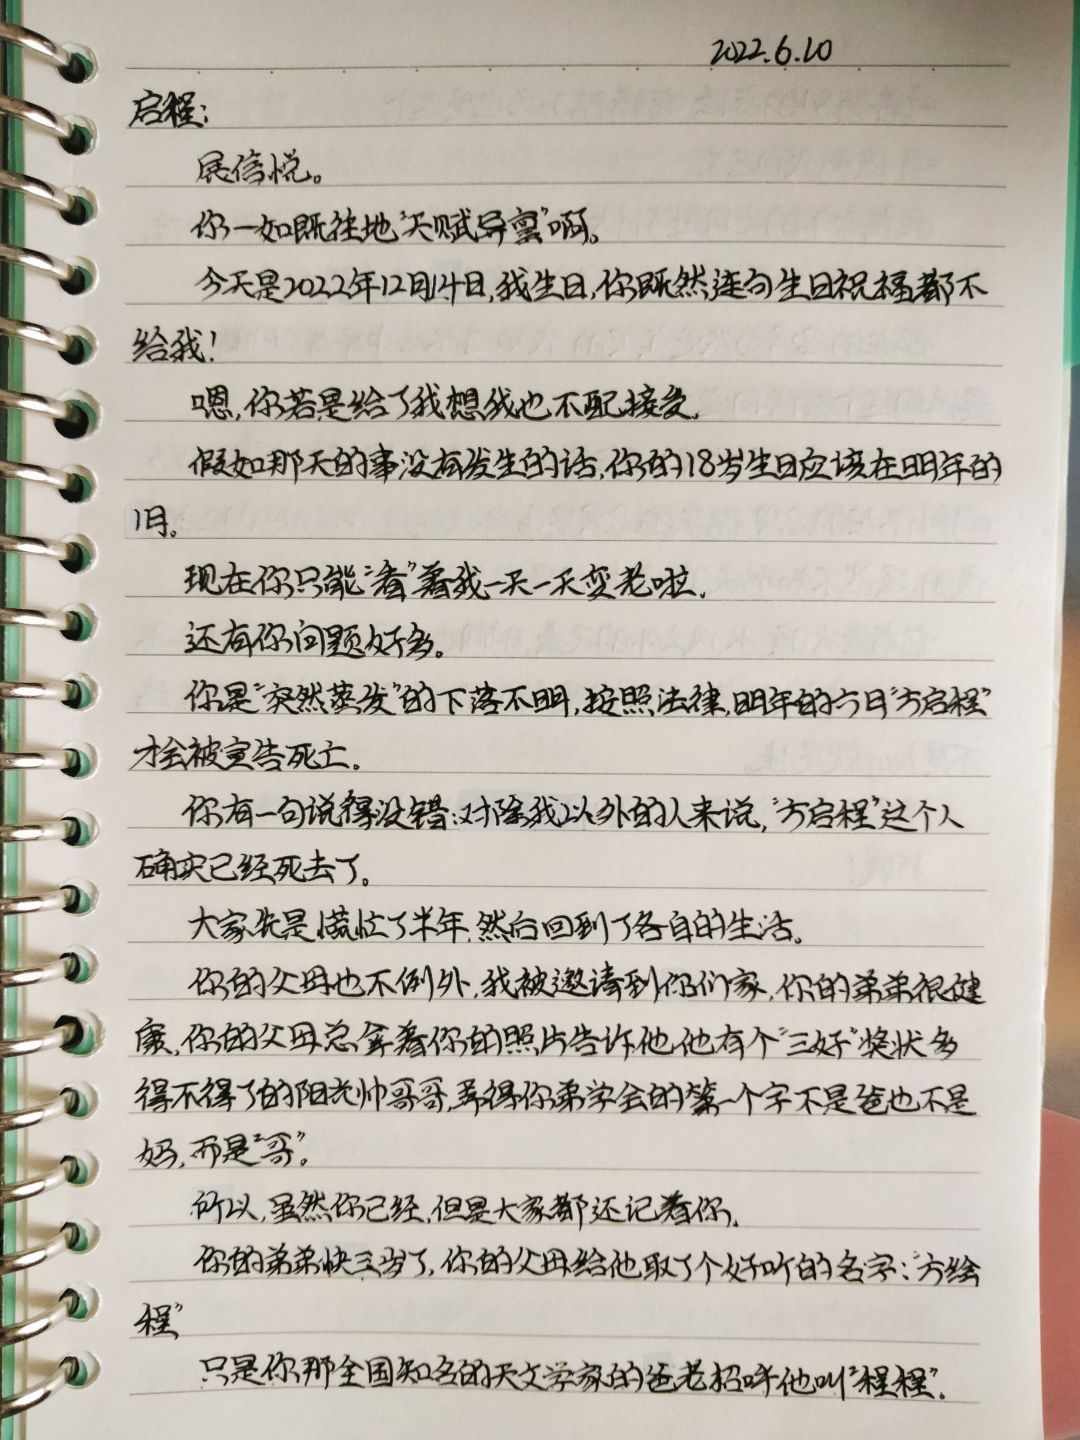 2022.6.20
启程:
展信悦。
你一如既往地“天赋异禀”啊。
今天是2022年12月14日,我生日,你既然连句生日祝福都不
给我!
嗯,你若是给了我想我也不配接受.
假如那天的事没有发生的话,你的18岁生日应该在明年的
1月。
现在你只能“看”着我一天一天变老啦.
还有你问题好多。
你是“突然蒸发”的下落不明,按照法律,明年的六日“方启程”
才会被宣告死亡.
你有一句说得没错:对除我以外的人来说,“方启程”这个人
确实已经死去了。
大家先是慌忙了半年,然后回到了各自的生活。
你的父母也不例外,我被邀请到你们家,你的弟弟很健
康,你的父母总拿着你的照片告诉他,他有个“三好”奖状多
得不得了的阳光帅哥哥,弄得你弟学会的第一个字不是爸也不是
妈,而是“哥”。
所以,虽然你已经,但是大家都还记着你.
你的弟弟快三岁了,你的父母给他取了个好听的名字:“方绘
程”
只是你那全国知名的天文学家的爸老招呼他叫“程程”.